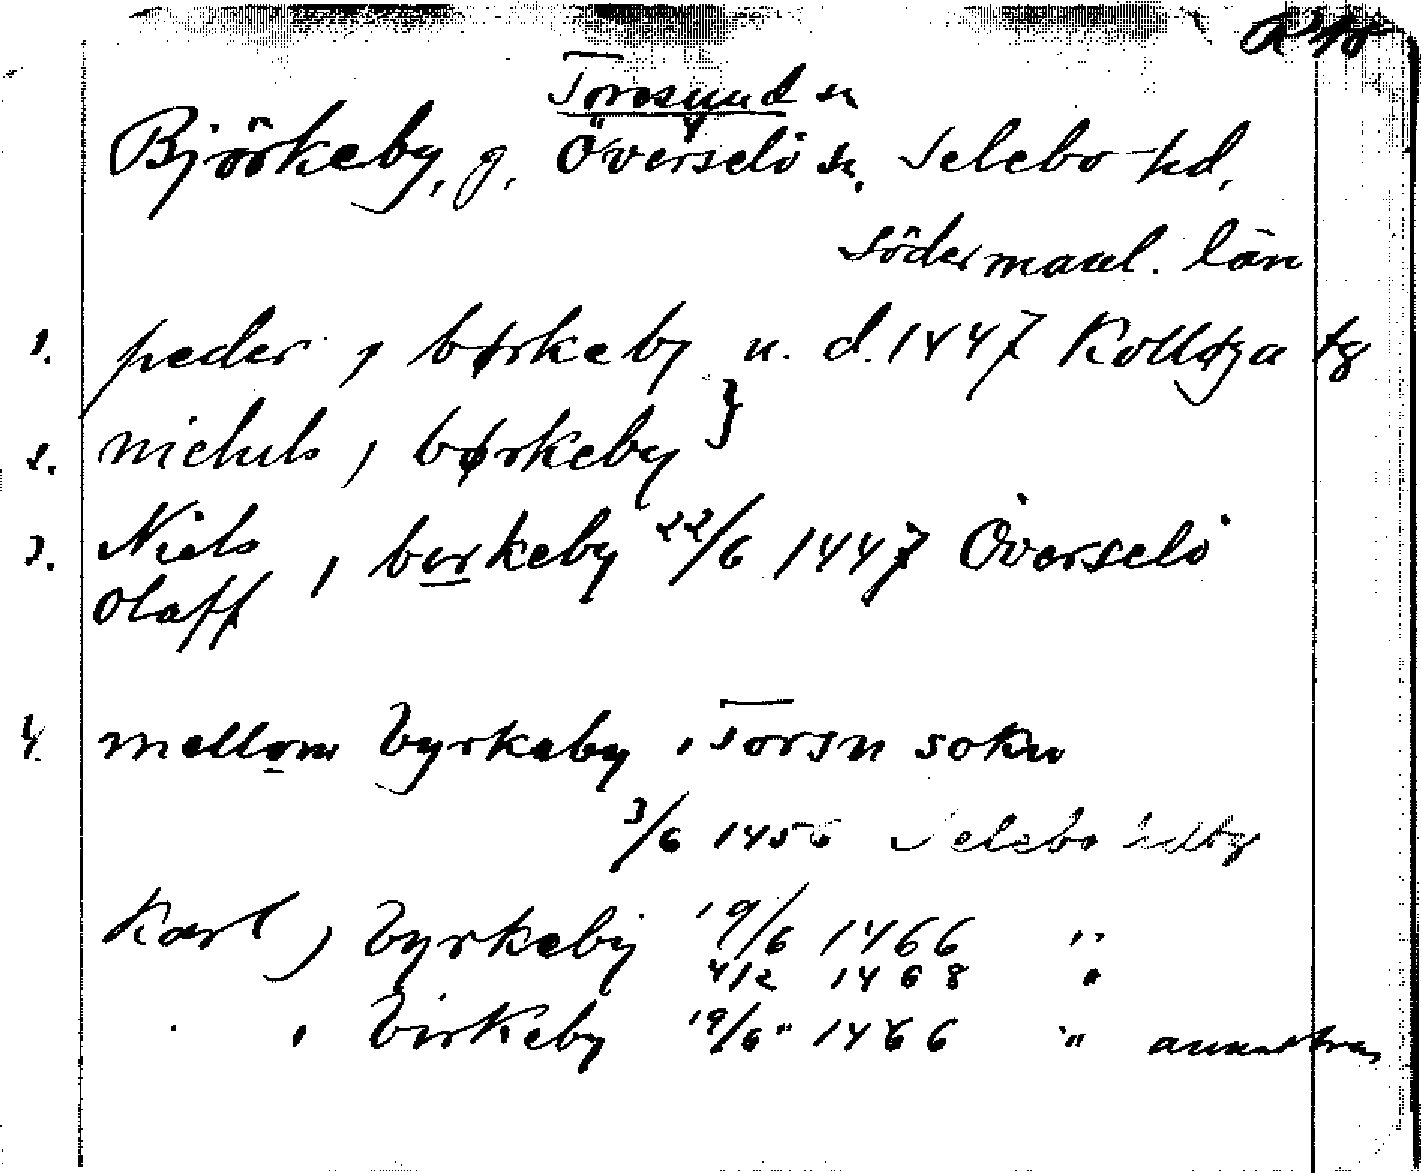 Toresund sn
Björkeby, g. Överselö sn, Selebo hd.
Södermanl. län
1. peder j børkeby u. d. 1447 Kolløga tg
2. nichels j børkeby }
3. Niels
Olaff j borkeby 22/6 1447 Överselö
4. mellom byrkeby i Torsn sokn
3/6 1456 Selebo hdtg
Karl j byrkeby 19/6 1466 "
4/2 1468 "
" birkeby 19/6 " 1466 "